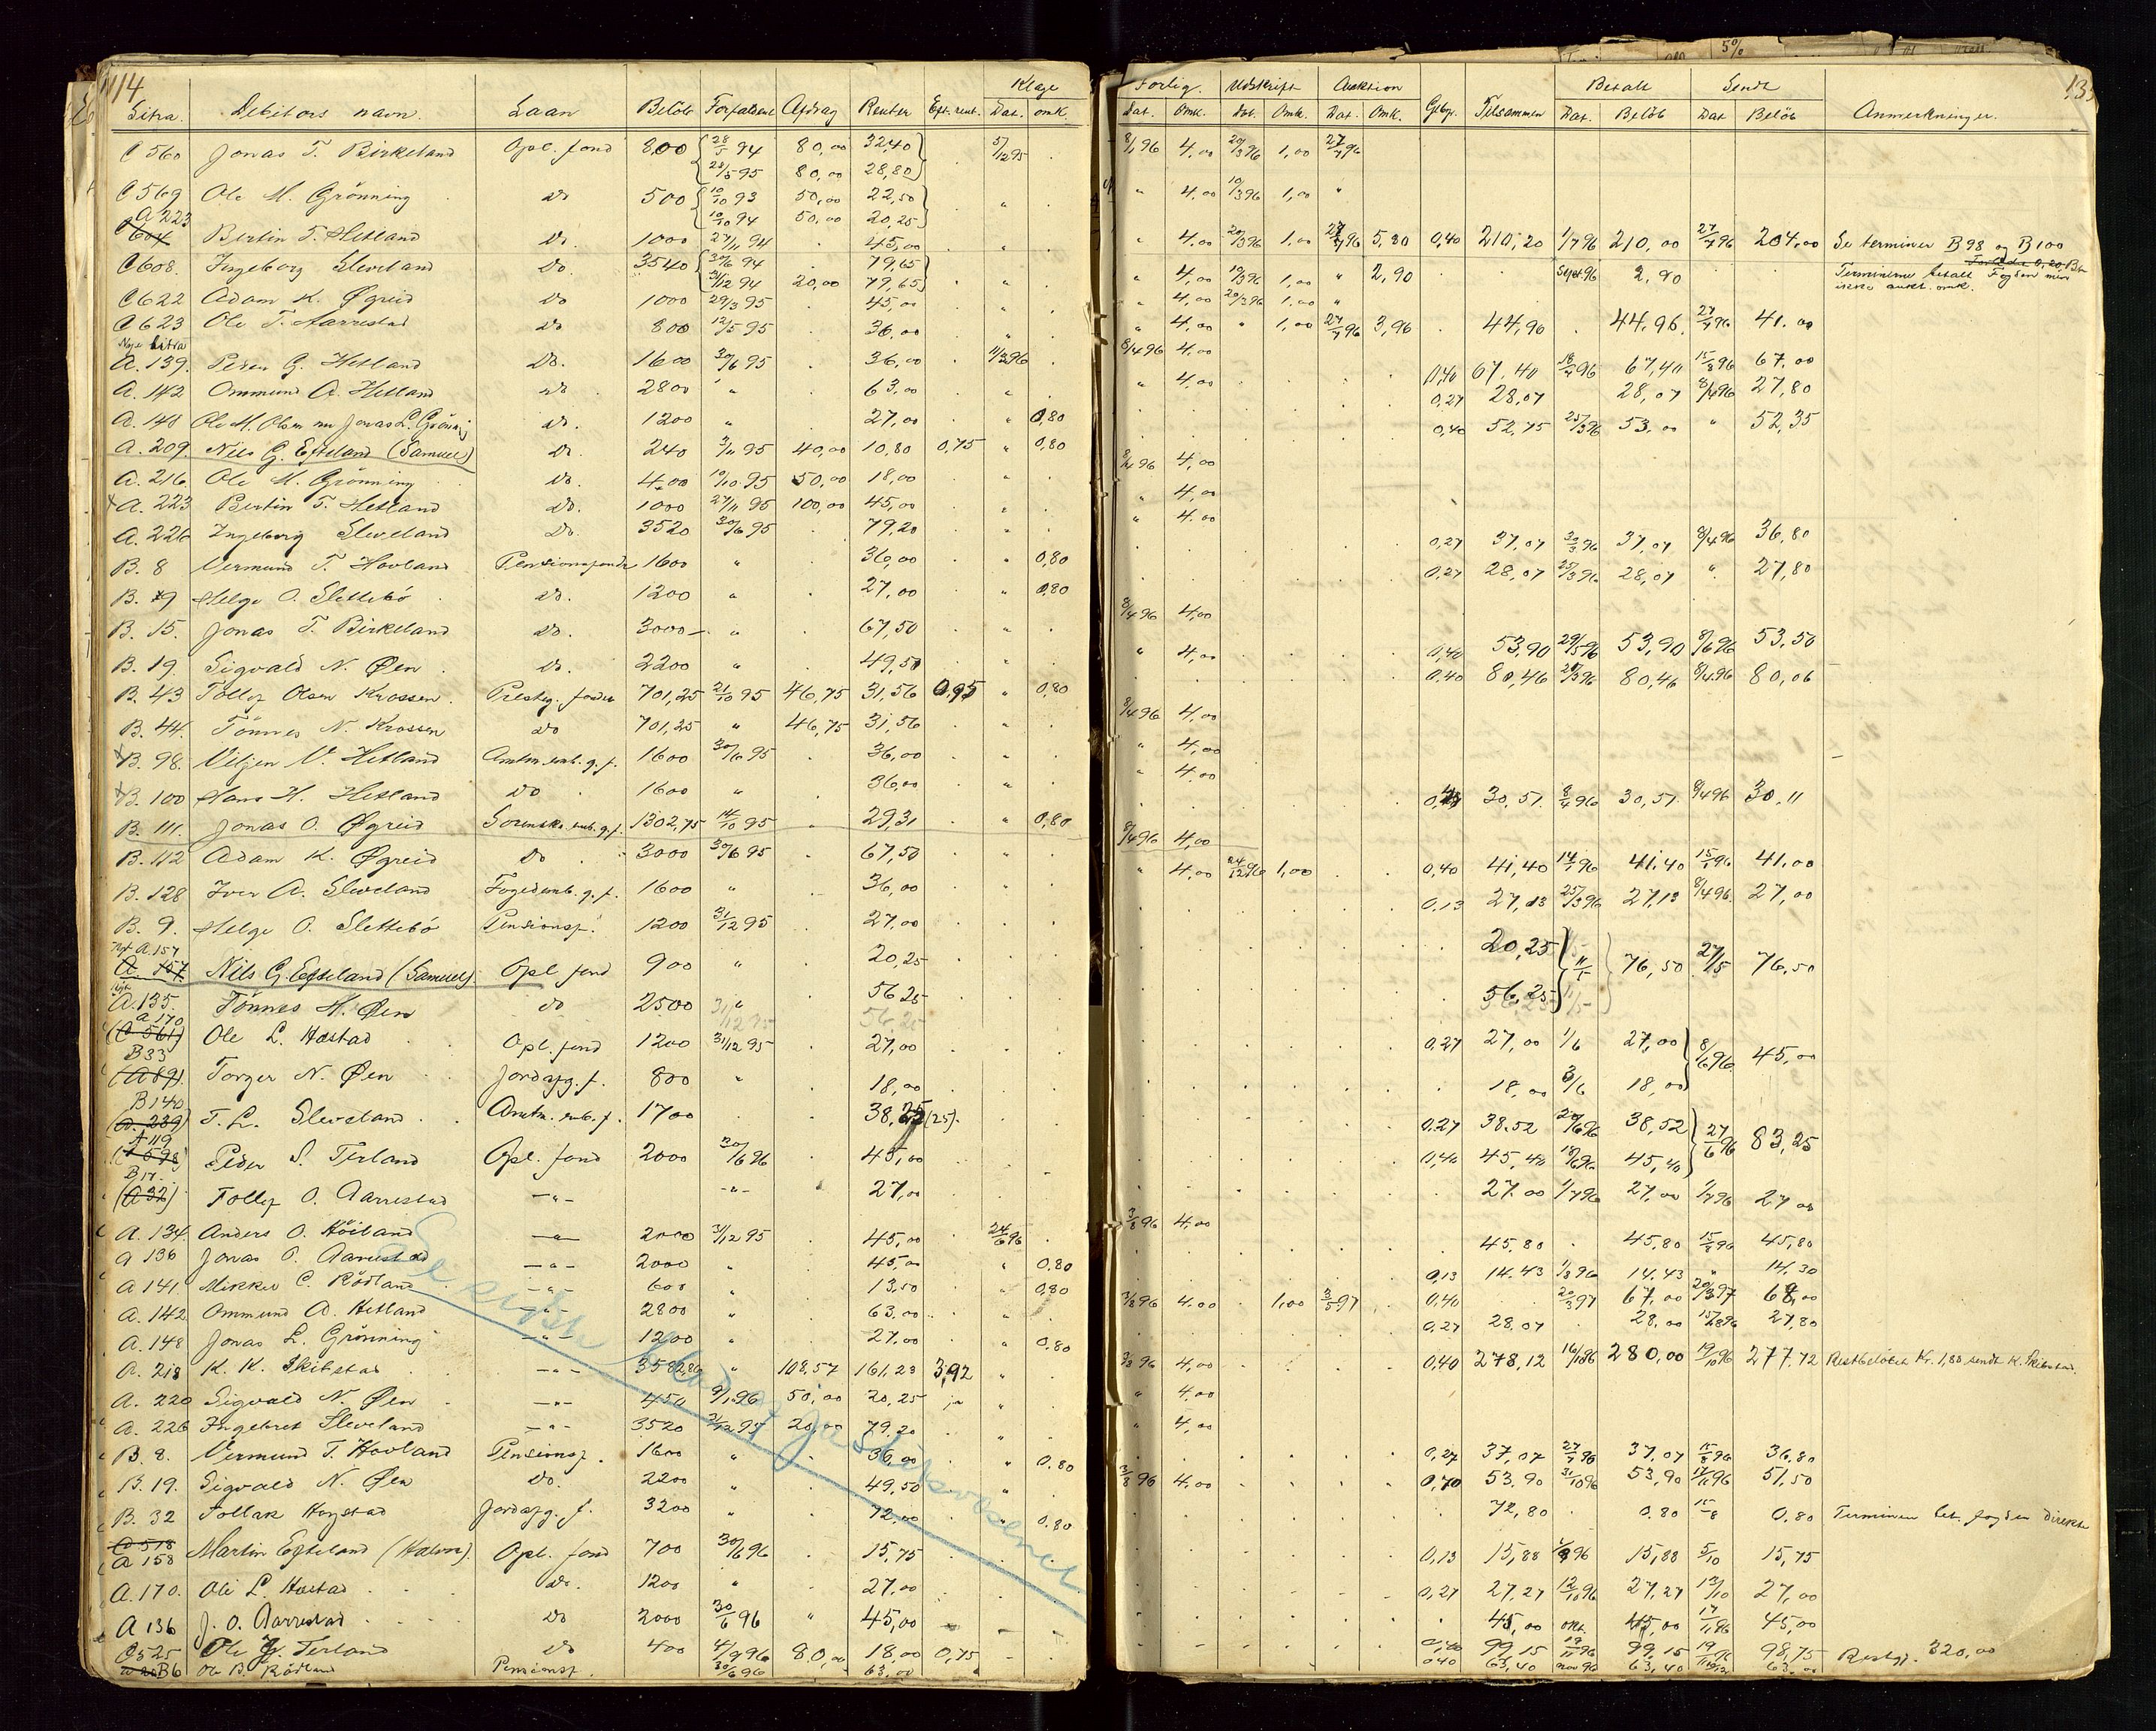 114
Klage
Litra. Debitors navn. Laan Beløb Forfaldent Afdrag Renter Eft. rent. Dat. omk.
C 560 Jonas T. Birkeland Opl. fond 800 28/5 94 80,00 32,40 5/12 95
28/5 95 80,00 28,80
C 569 Ole M. Grönning Do 500 10/10 93 50,00 22,50 "
10/10 94 50,00 20,25
A 223
C 604 Bertin T. Hetland Do. 1000 27/11 94 . 45,00 . "
C 608. Ingeborg Sleveland Do 3540 30/6 94 79,65
31/12 94 20,00 79,65 "
C 622 Adam K. Øgreid Do 1000 29/3 95 . 45,00 . "
C 623 Ole T. Aarrestad Do 800 12/5 95 . 36,00 . "
Nye Litra
A. 139. Peder G. Hetland Do. 1600 30/6 95 . 36,00 . 11/3 96
A. 142 Ommund A. Hetland Do 2800 " . 63,00 "
A. 148 Ole M. Olsen nu Jonas L. Grönnig Do. 1200 " . 27,00 " 0,80
A. 209. Nils G. Egeland (Samuels) Do. 240 3/11 95 40,00 10,80 0,75 " 0,80
A. 216. Ole M. Grönning Do. 400 10/10 95 50,00 18,00 "
A. 223 Bertin T. Hetland Do. 1000 27/11 95 100,00 45,00 "
A. 226 Ingeborg Sleveland Do 3520 30/6 95 79,20 "
B. 8 Vermund T. Hovland Pensionsfonds 1600 " . 36,00 " 0,80
B. 9 Helge O. Slettebö Do. 1200 " . 27,00 " 0,80
B. 15. Jonas T. Birkeland Do. 3000 " . 67,50 . "
B. 19. Sigvald N. Øen Do. 2200 " . 49,50 . "
B. 43 Tollef Olsen Krossen. Presteg. fonds 701,25 21/10 95 46,75 31,56 0,95 " 0,80
B. 44. Tönnes N. Krossen Do 701,25 " 46,75 31,56 . "
B. 98. Viljen V. Hetland Amtm. emb. g. f. 1600 30/6 95 . 36,00 "
B. 100 Hans H. Hetland Do . 1600 " 36,00 "
B. 111. Jonas O. Øgreid Sorensk. emb. g. f. 1302,75 14/10 95 . 29,31 . " 0,80
B. 112 Adam K. Øgreid Do . 3000 30/6 95 . 67,50 . "
B. 128 Iver A. Sleveland Fogedemb. g. f. 1600 " . 36,00 . "
B. 9. Helge O. Slettebö Pensionsf. 1200 31/12 95 27,00
Nyt A. 157
Nils G. Egeland (Samuels) Opl. fond 900 " 20,25
Nyt
A. 135 Tönnes H. Øen Do 2500 " 56,25
A 170
(C 561) Ole L. Hæstad Opl. fond 1200 31/12 95 . 27,00
B 33
(A 89). Torger N. Øen Jordafg. f. 800 " 18,00
B 140
(A. 239) T. L. Sleveland Amtm. emb. f. 1700 38,25 (25).
A 119
Peder S. Terland Opl. fond 2000 30/6 96 . 45,00
B 17.
(A 32) Tollef O. Aarrestad —"— —"— 27,00
A. 134. Anders O. Höiland —"— 2000 31/12 95 . 45,00 24/6 96
A 136 Jonas O. Aarrestad —"— 2000 " 45,00 " 0.80
A 141. Mikkel C. Rödland —"— 600 " 13,50 " 0,80
A. 142 Ommund A. Hetland —"— 2800 " 63,00 "
A. 148 Jonas L. Grönning —"— 1200 " 27,00 " 0.80
A. 218 K. K. Skibstad —"— 3582,80 " 108,57 161,23 3,92 "
A. 220 Sigvald N. Øen —"— 450 9/1 96 50,00 20,25 ja "
A. 226 Ingebret Sleveland —"— 3520 31/12 95 20,00 79.20
B. 8. Vermund T. Hovland Pensionsf. 1600 " 36,00 " 0.80
B. 19. Sigvald N. Øen Do. 2200 " 49,50 "
B. 32 Tollak Hogstad Jordafg. f. 3200 " 72,00 " 0.80
C 518
A 158 Martin Egeland (Halvor). Opl. fond 700 30/6 96 . 15,75
A. 170. Ole L. Hæstad Do. 1200 " . 27.00
A 136 J. O. Aarrestad Do 2000 30/6 96 " 45,00
C 525 Ole G. Terland Do 400 4/9 96 80,00 18,00 0,75
B6 Ole B. Rödland Pensionsf. 30/6 96 63,00
Se siste
135
Forlig. Udskrift Auktion Betalt Sendt
Dat. Omk. Dat. Omk. Dat. Omk. Gebyr. Tilsammen Dat. Beløb Dat Beløb Anmerkninger.
8/1 96 4,00 20/3 96 1,00 27/4 96
" 4,00 10/3 96 1,00 "
" 4,00 20/3 96 1,00 27/4 96 5,80 0,40 210,20 1/7 96 210,00 27/7 96 204,00 Se terminer B 98 og B 100
" 4,00 10/3 96 1,00 " 2,90 Sept 96 2,90 Terminerne betalt Fogden men
ikke aukt. omk.
" 4,00 20/3 96 1,00 "
" 4,00 " 1,00 27/4 96 3,96 . 44,96 . 44,96. 27/7 96 41.00
8/4 96 4,00
" 4,00 0,40 67,40 18/7 96 67,40 15/8 96 67,00
0,27 28,07 28,07 8/4 96 27,80
0,40 52,75 25/3 96 53,00 " 52,35
8/4 96 4,00
" 4,00
" 4.00
0,27 37,07 30/3 96 37,07 8/4 96 36,80
0,27 28,07 25/3 96 28,07 " 27,80
8/4 96 4,00
" 4,00 0,40 53,90 29/5 96 53,90 8/6 96 53,50
0,40 80,46 20/3 96 80,46 8/4 96 80,06
8/4 96 4,00
" 4,00
" 4.00
30,51. 8/4 96 30,51 8/4 96 30,11
8/4 96 4,00
" 4,00 24/12 96 1,00 0,40 41,40 14/1 96 41,40 15/1 96 41,00
0,13 27,13 25/3 96 27,13 8/4 96. 27,00
20,25 11/5 76,50 27/5 76,50
56,25 11/5
0,27 27,00 1/6 27,00 8/6 96. 45,00
18,00 3/6 18,00
0,27 38.52 20/6 96 38,52 27/6 96 83,25
0,40 45,40 18/6 96 45,40
27.00 1/7 96 27,00 1/7 96 27,00
3/8 96 4,00
45.80 . 45,80 15/8 96 45,80
0,13 14.43 1/8 96 14,43 " 14,30
3/8 96 4.00 . 1,00 3/5 97 0,40 20/3 97 67,00 20/3 97 68,00
0,27 28.07 28,00 15/8 96 27,80
3/8 96 4,00 0,40 278,12 16/10 96 280,00 19/10 96 277,72 Restbeløbet Kr. 1,80 sendt K. Skibstad.
" 4,00
" 4,00
0,27 37,07 27/7 96 37,07 15/8 96 36,80
3/8 96 4,00 0,40 53,90 31/10 96 53,90 17/11 96 51,50
72,80 . 0.80 15/8 0,80 Terminen bet. fogden direkte
0,13 15,88 15,88 5/10 15,75
0,27 27,27 12/10 96 27,27 13/10 27,00
45,00 okt. 45,00 17/11 96 45,00
0,40 99,15 19/11 96 99,15 19/11 96 98,75 Restgj. 320,00
0.40 63,40 nov 96 63,40 63,00